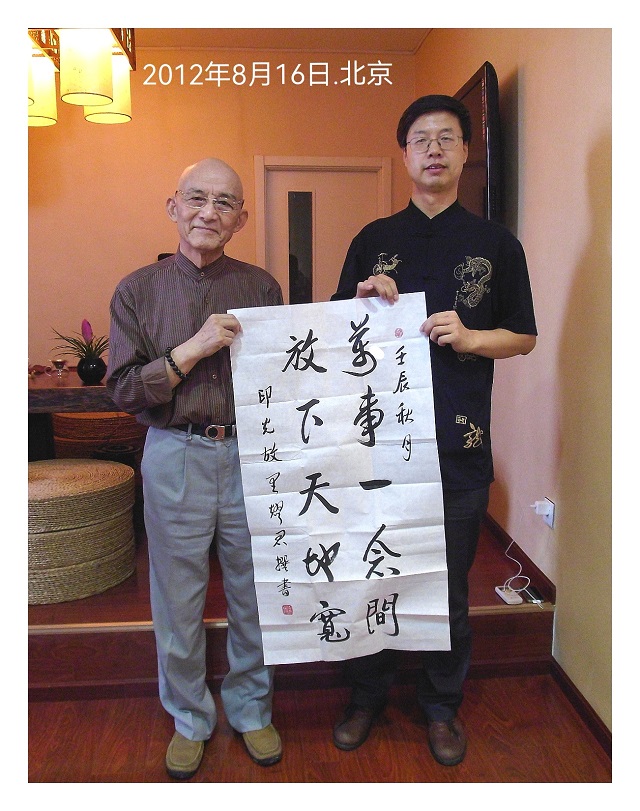 2012年8月16日.北京
壬辰秋月
萬事一念間
放下天地寬
印光故里耀君撰書